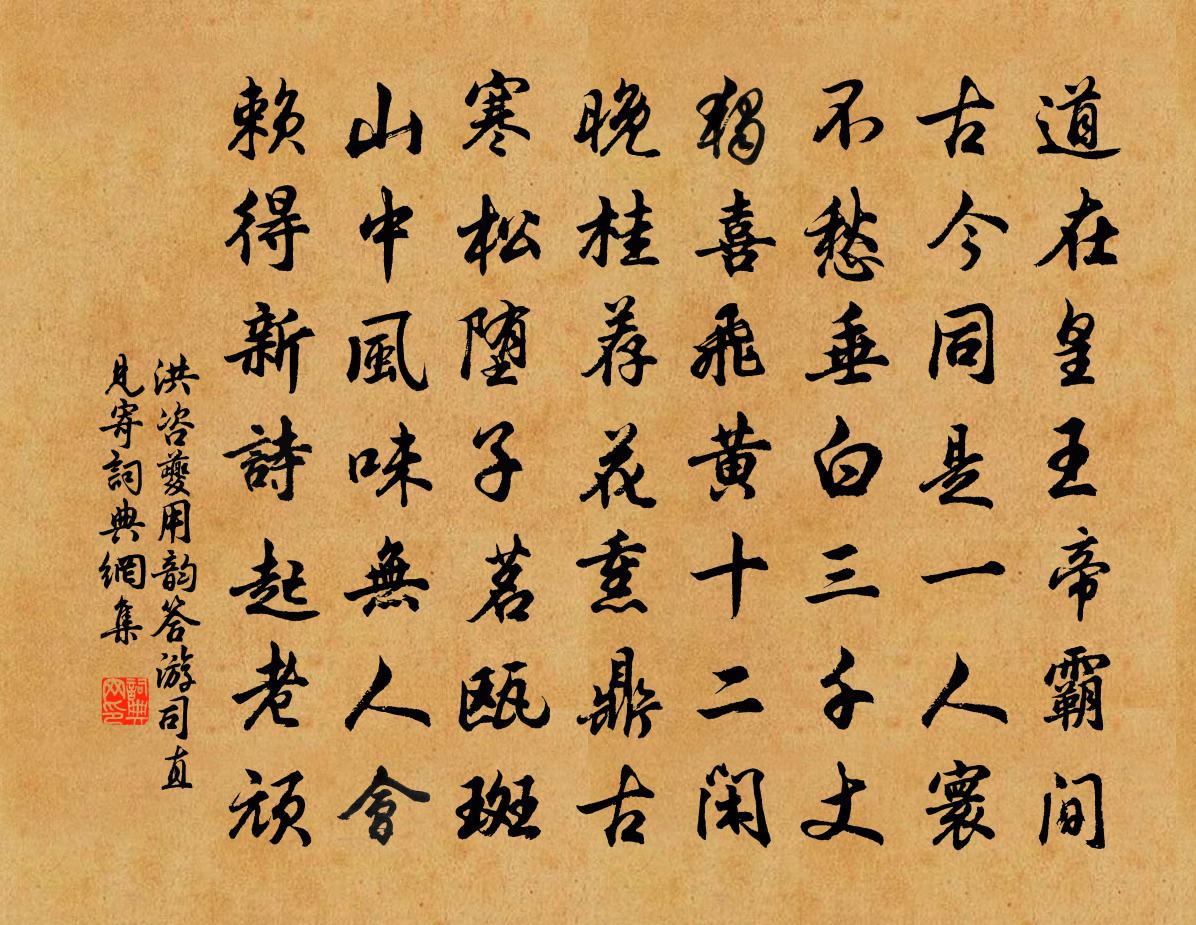 道在皇王帝霸間
古今同是一人寰
不愁垂白三千丈
獨喜飛黄十二閑
晚桂荐花熏鼎古
寒松堕子茗瓯斑
山中風味無人會
賴得新詩起老頑
洪咨夔用韵答游司直
見寄詞典網集
詞典
网印